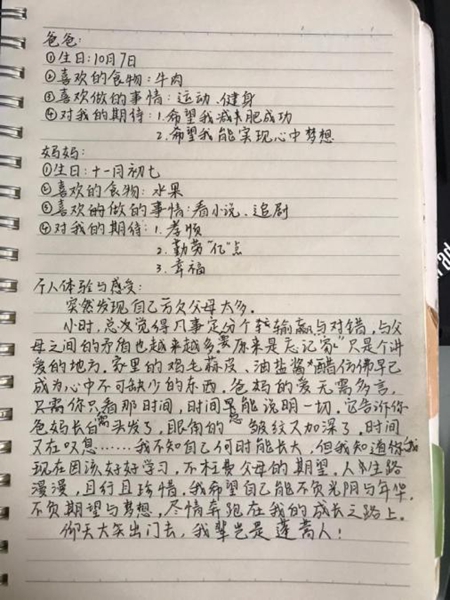 爸爸:
①生日:10月7日
②喜欢的食物:牛肉
③喜欢做的事情:运动、健身
④对我的期待:1.希望我减肥成功
2.希望我能实现心中梦想
妈妈:
①生日:十一月初七
②喜欢的食物:水果
③喜欢的做的事情:看小说、追剧
④对我的期待:1.孝顺
2.勤劳“亿”点
3.幸福
个人体验与感受:
突然发现自己亏欠父母太多。
小时,总次觉得凡事定分个输赢与对错,与父
母之间的矛盾也越来越多。原来是忘记“家”只是个讲
爱的地方。家里的鸡毛蒜皮、油盐酱醋仿佛早已
成为心中不可缺少的东西,爸妈的爱无需多言,
只需你只看那时间,时间早能说明一切,它告诉你
爸妈长白头发了,眼角的皱纹又加深了,时间
又在叹息……我不知自己何时能长大,但我知道
现在因该好好学习,不枉费父母的期望,人生路
漫漫,且行且珍惜,我希望自己能不负光阴与年华,
不负期望与梦想,尽情奔跑在我的成长之路上。
仰天大笑出门去,我辈岂是蓬蒿人!